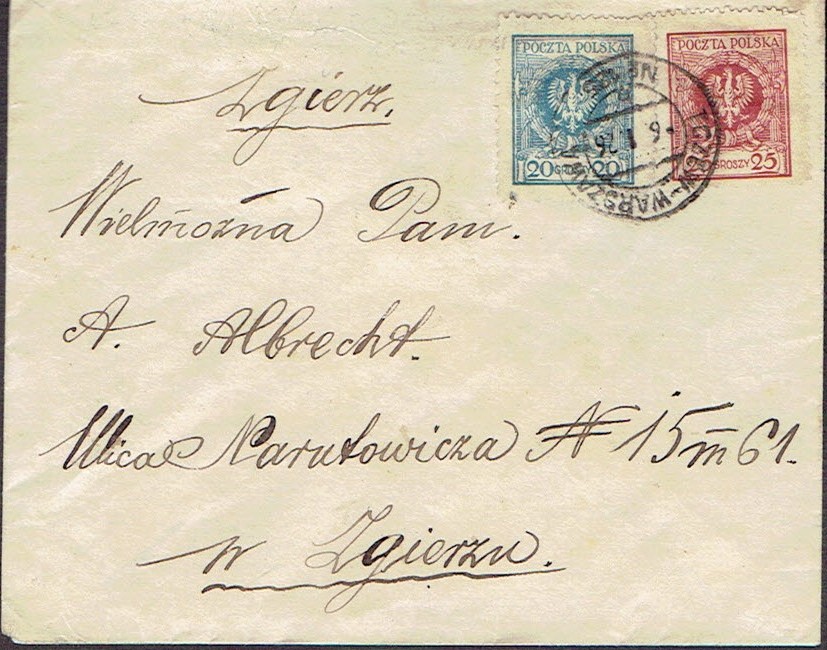 Zgierz.
POCZTA POLSKA
20 GROSZY 20
POCZTA POLSKA
GROSZY 25
TCZEW-WARSZAWA
-6 1 26
Wielmożna Pani.
A. Albrecht.
Ulica Narutowicza N 15 m 61.
w Zgierzu.